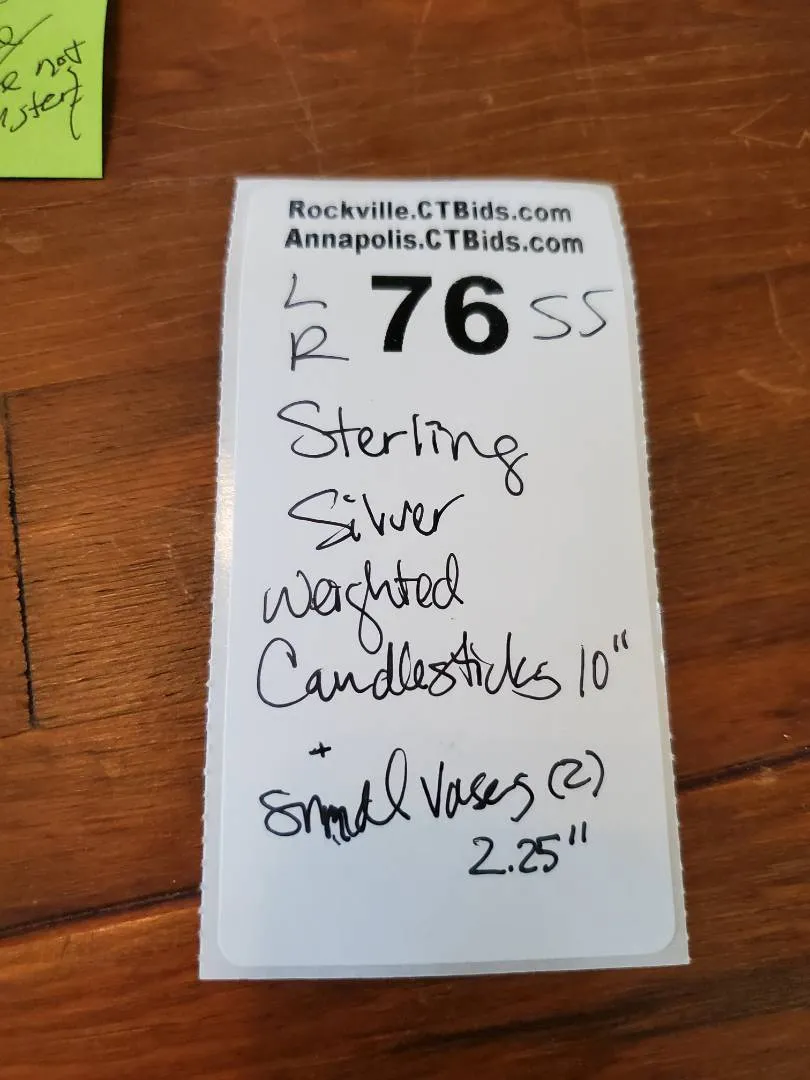 not
Rockville.CTBids.com
Annapolis.CTBids.com
L
R 76 SS
Sterling
Silver
Weighted
Candlesticks 10"
+
Small Vases (2)
2.25"